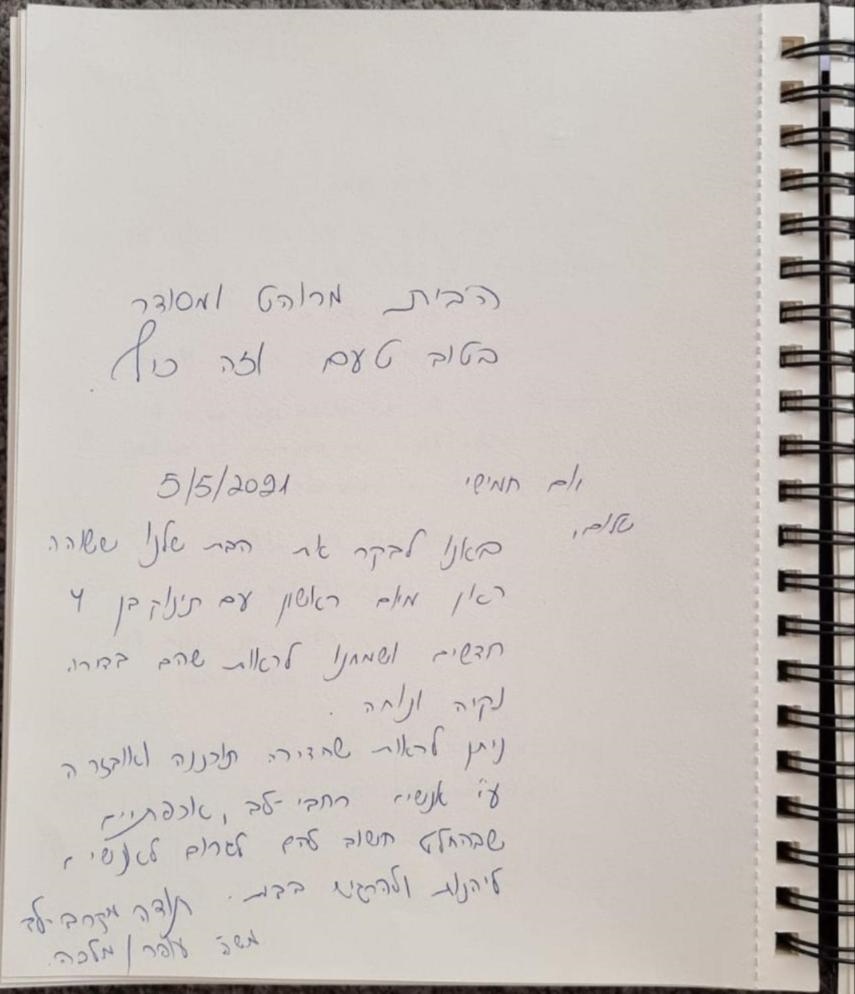 הבית מרוהט ומסודר
בטוב טעם וזה כיף
.
יום חמישי 5/5/2021
שלום,
באנו לבקר את הבת שלנו ששוהה
כאן מיום ראשון עם תינוק בן 4
חדשים ושמחנו לראות שהם בדירה
נקיה ונוחה.
ניתן לראות שהדירה תוכננה ואובזרה
ע"י אנשים רחבי-לב, אכפתיים
שבהחלט חשוב להם לגרום לאנשים
ליהנות ולהרגיש בבית. תודה מקרב-לב
מש' עופר / מלכה.